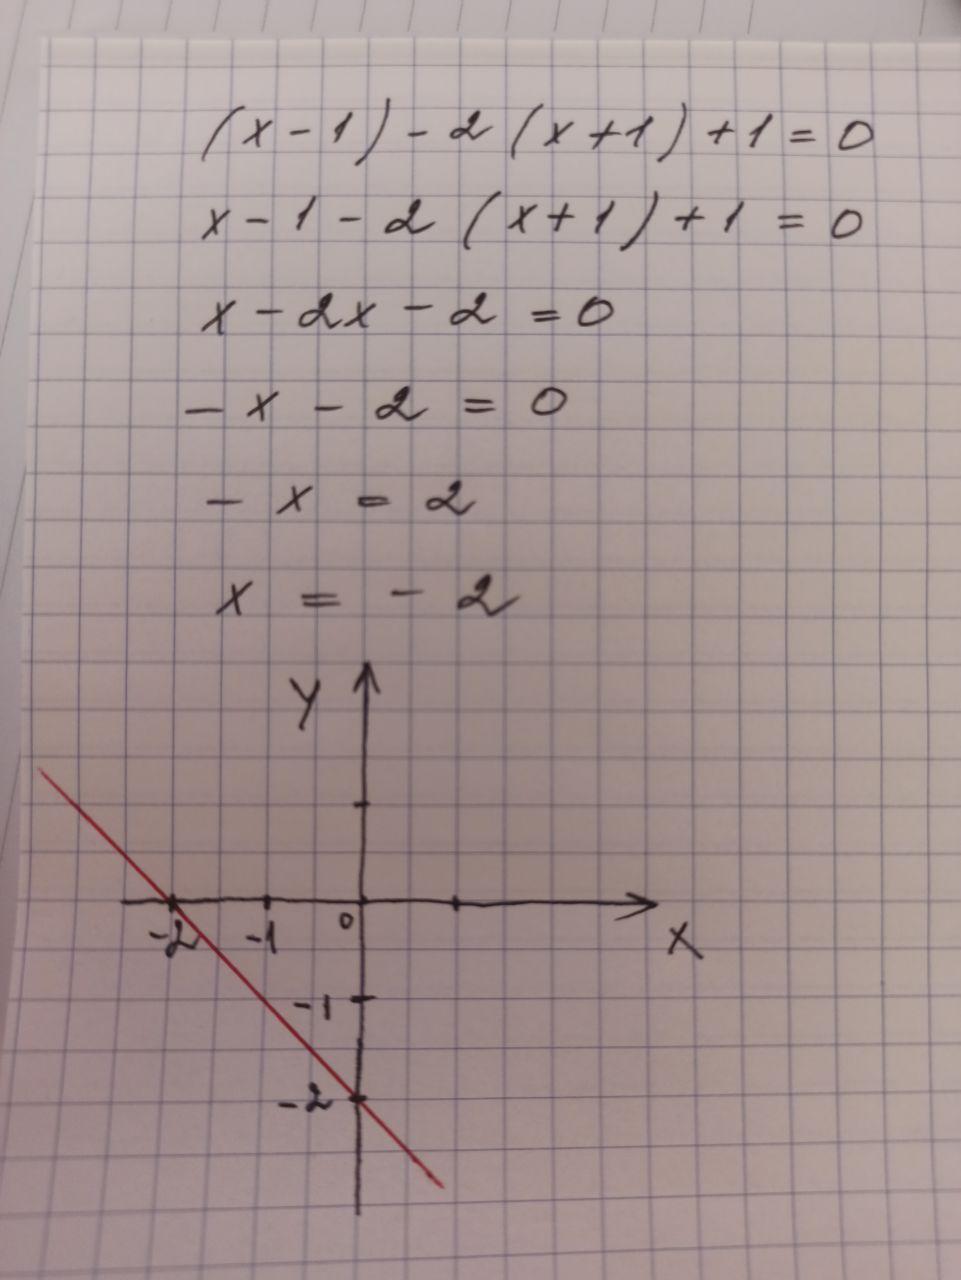 (x - 1) - 2 (x + 1) + 1 = 0
x - 1 - 2 (x + 1) + 1 = 0
x - 2x - 2 = 0
- x - 2 = 0
- x = 2
x = - 2
y
-2 -1 0
x
-1
-2